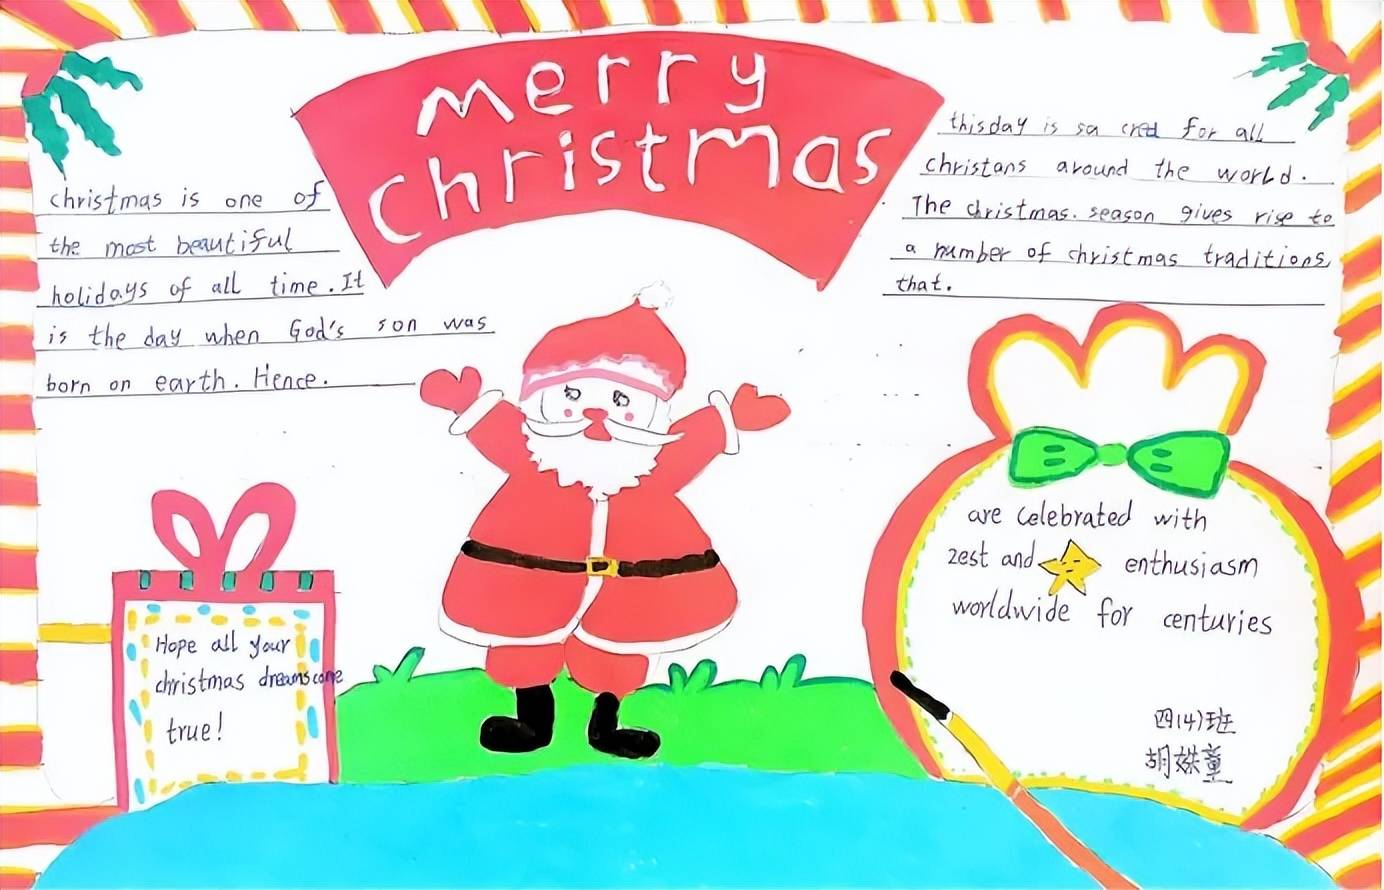 merry
christmas
christmas is one of
the most beautiful
holidays of all time. It
is the day when God's son was
born on earth. Hence.
this day is sa cred for all
christans around the world.
The christmas. season gives rise to
a number of christmas traditions,
that.
are celebrated with
zest and enthusiasm
worldwide for centuries
Hope all your
christmas dreams come
true!
四(4)班
胡姝童